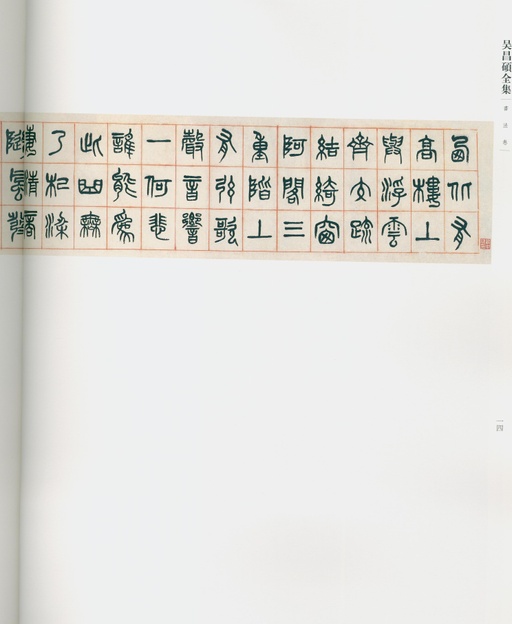 吴昌碩全集
書法卷
西北有
高樓上
與浮雲
齊交疏
結綺窗
阿閣三
重階上
有弦歌
聲音響
一何悲
誰能為
此曲無
乃杞梁
妻清商
隨風發
四